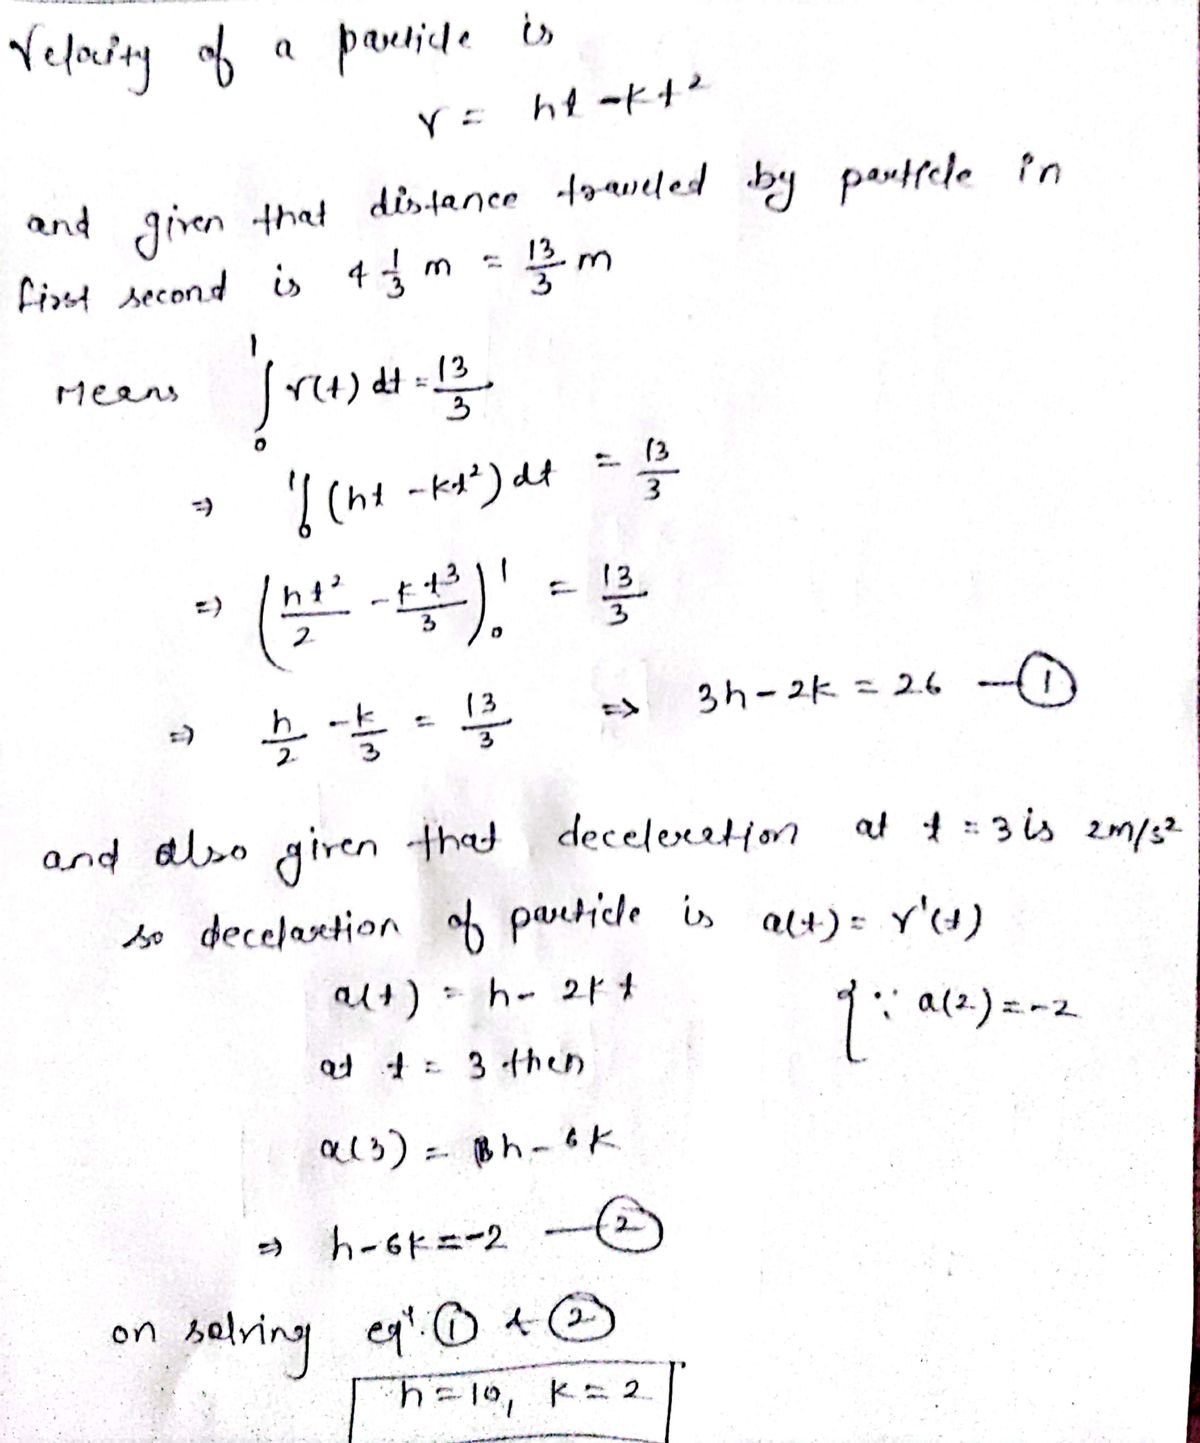 Velocity of a particle is
v = ht - kt²
and given that distance traveled by particle in
first second is 4 1/3 m = 13/3 m
Means ∫₀¹ v(t) dt = 13/3
⇒ ∫₀¹ (ht - kt²) dt = 13/3
⇒ (ht²/2 - kt³/3)₀¹ = 13/3
⇒ h/2 - k/3 = 13/3 ⇒ 3h - 2k = 26 — ①
and also given that deceleration at t = 3 is 2m/s²
so decelartion of particle is a(t) = v'(t)
a(t) = h - 2kt { ∵ a(2) = -2
at t = 3 then
a(3) = h - 6k
⇒ h - 6k = -2 — ②
on solving eqⁿ. ① & ②
h = 10, k = 2